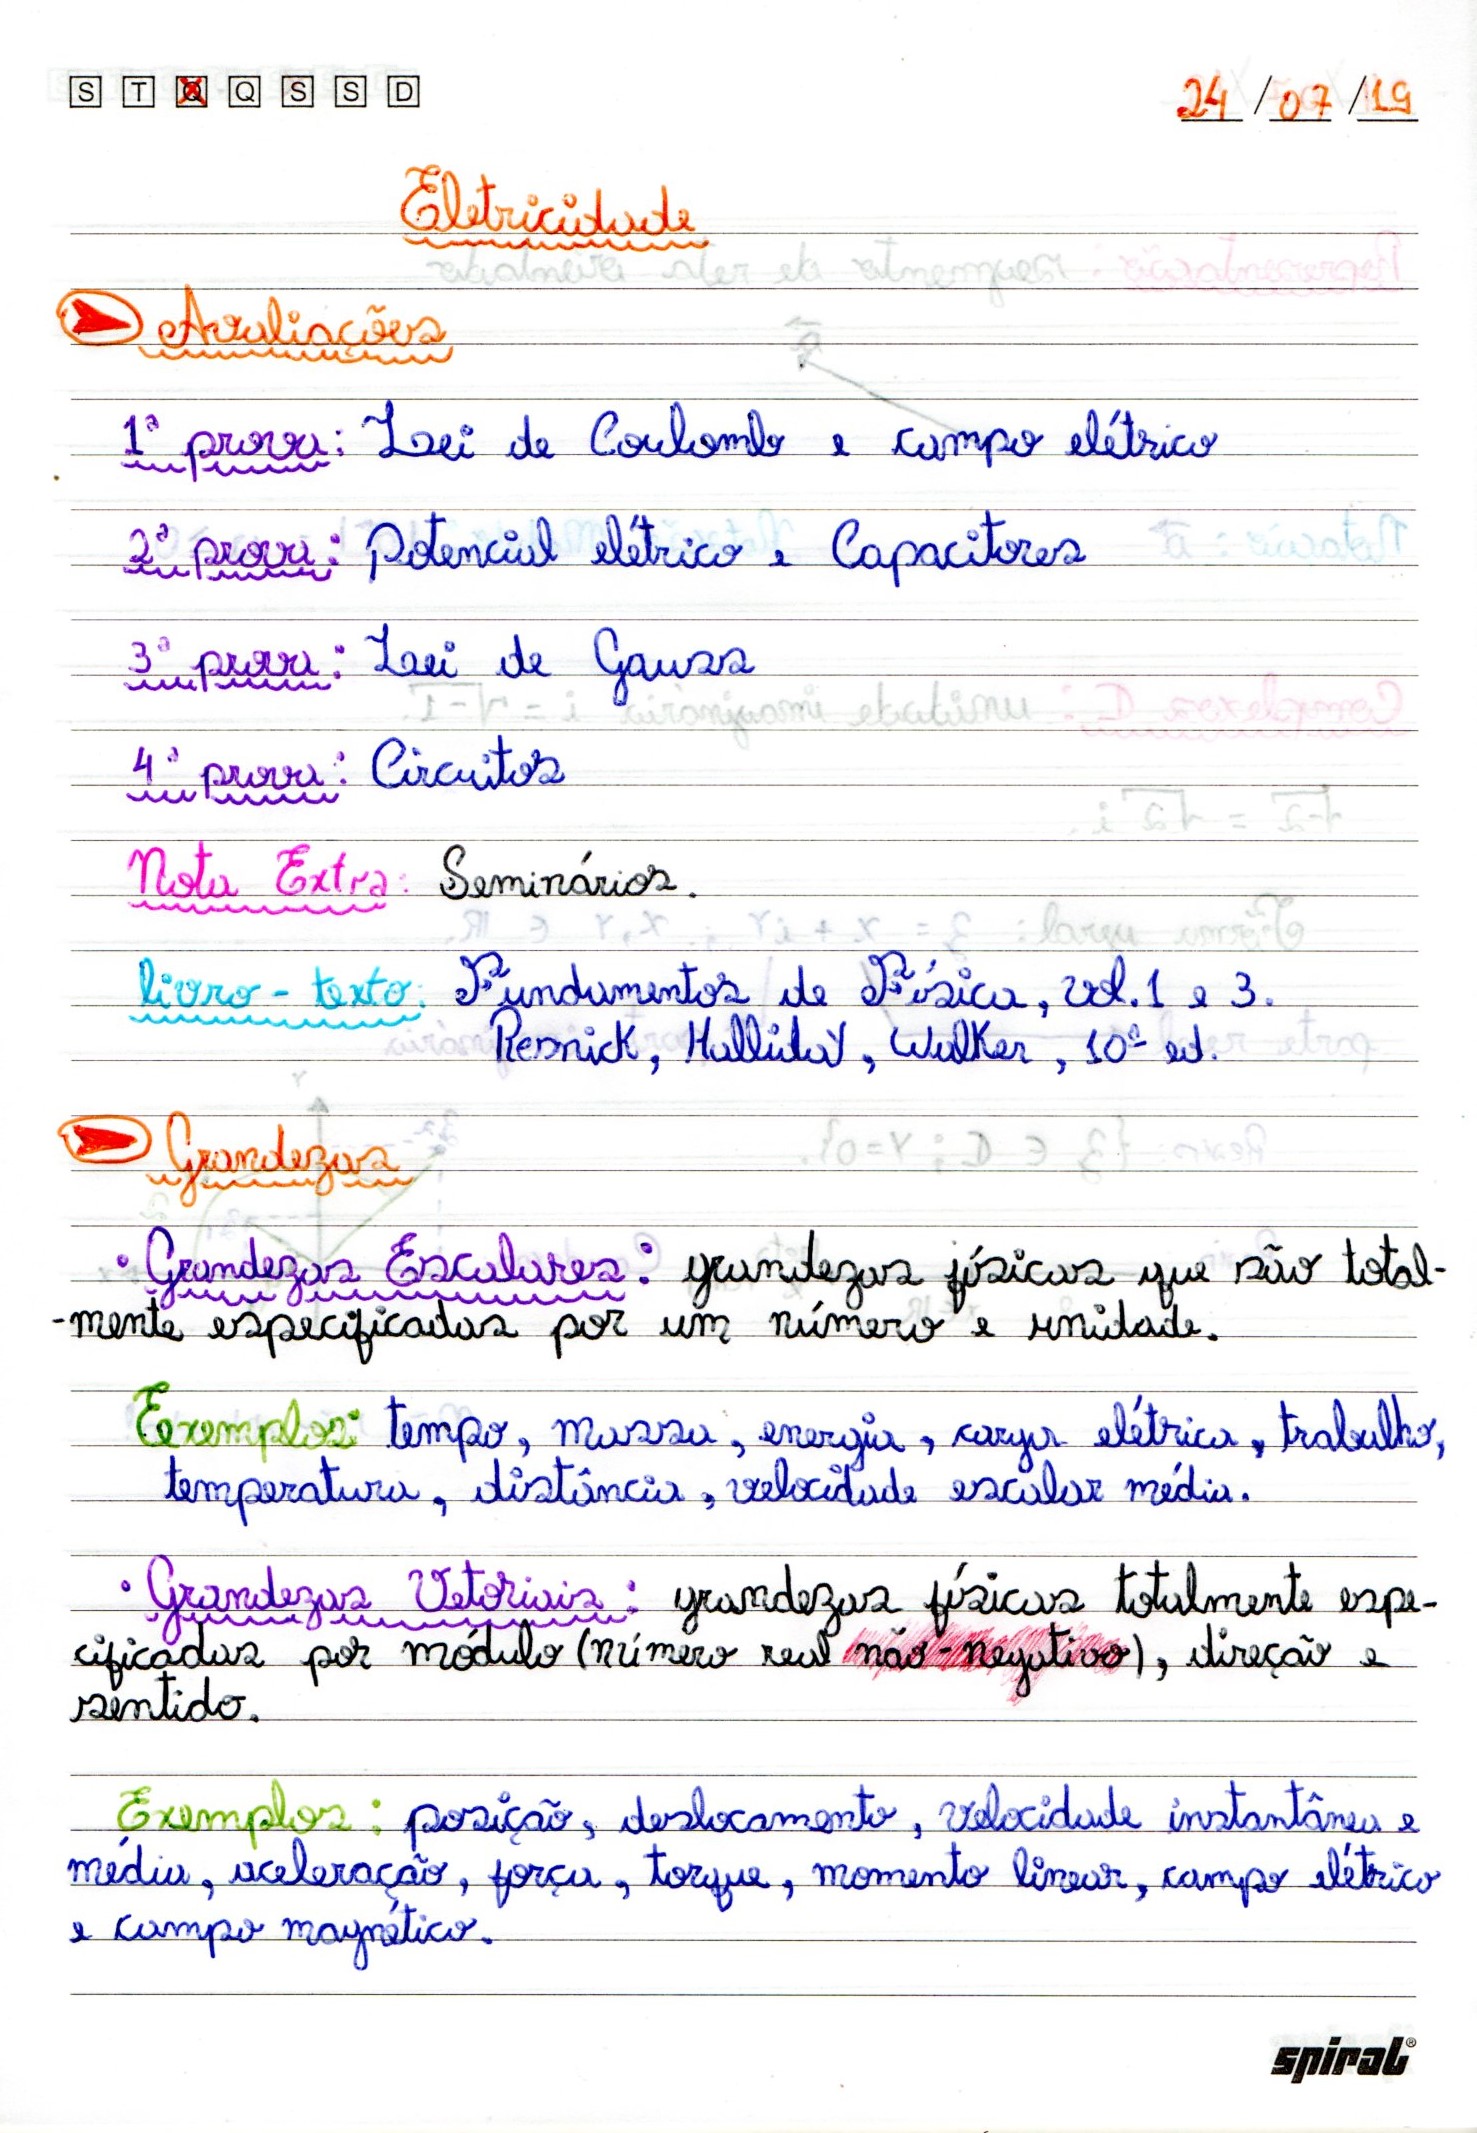 S T Q Q S S D 24/07/19
Eletricidade
Avaliações
1ª prova: Lei de Coulomb e campo elétrico
2ª prova: Potencial elétrico e Capacitores
3ª prova: Lei de Gauss
4ª prova: Circuitos
Nota Extra: Seminários.
livro-texto: Fundamentos de Física, vol. 1 e 3.
Resnick, Halliday, Walker, 10ª ed.
Grandezas
· Grandezas Escalares: grandezas físicas que são total-
-mente especificadas por um número e unidade.
Exemplos: tempo, massa, energia, carga elétrica, trabalho,
temperatura, distância, velocidade escalar média.
· Grandezas Vetoriais: grandezas físicas totalmente espe-
cificadas por módulo (número real não-negativo), direção e
sentido.
Exemplos: posição, deslocamento, velocidade instantânea e
média, aceleração, força, torque, momento linear, campo elétrico
e campo magnético.
spiral®